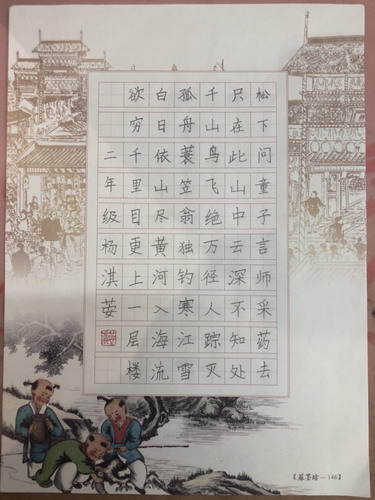 松下问童子言师采药去
只在此山中云深不知处
千山鸟飞绝万径人踪灭
孤舟蓑笠翁独钓寒江雪
白日依山尽黄河入海流
欲穷千里目更上一层楼
二年级杨淇